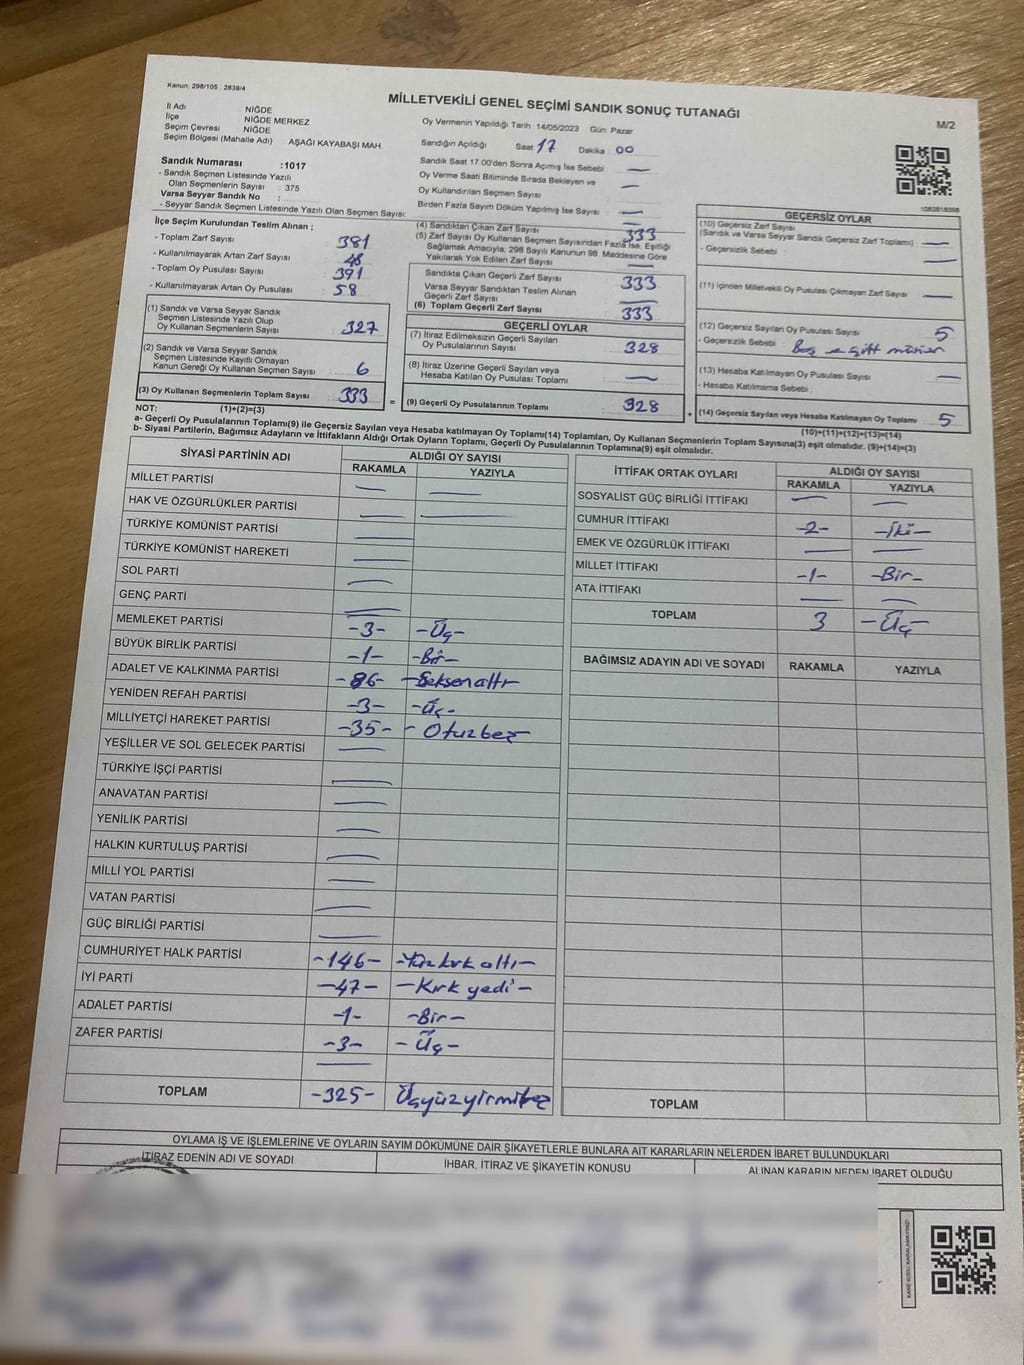 Kanun: 298/105 , 2839/4
MİLLETVEKİLİ GENEL SEÇİMİ SANDIK SONUÇ TUTANAĞI
M/2
İl Adı NİĞDE
İlçe NİĞDE MERKEZ
Seçim Çevresi NİĞDE
Seçim Bölgesi (Mahalle Adı) AŞAĞI KAYABAŞI MAH.
Sandık Numarası :1017
- Sandık Seçmen Listesinde Yazılı
Olan Seçmenlerin Sayısı : 375
Varsa Seyyar Sandık No :
- Seyyar Sandık Seçmen Listesinde Yazılı Olan Seçmen Sayısı:
Oy Vermenin Yapıldığı Tarih :14/05/2023 Gün: Pazar
Sandığın Açıldığı Saat 17 Dakika : 00
Sandık Saat 17:00'den Sonra Açılmış İse Sebebi : —
Oy Verme Saati Bitiminde Sırada Bekleyen ve
Oy Kullandırılan Seçmen Sayısı —
Birden Fazla Sayım Döküm Yapılmış İse Sayısı : —
İlçe Seçim Kurulundan Teslim Alınan ;
- Toplam Zarf Sayısı : 381
- Kullanılmayarak Artan Zarf Sayısı : 48
- Toplam Oy Pusulası Sayısı : 391
- Kullanılmayarak Artan Oy Pusulası : 58
(1) Sandık ve Varsa Seyyar Sandık
Seçmen Listesinde Yazılı Olup
Oy Kullanan Seçmenlerin Sayısı : 327
(2) Sandık ve Varsa Seyyar Sandık
Seçmen Listesinde Kayıtlı Olmayan
Kanun Gereği Oy Kullanan Seçmen Sayısı : 6
(3) Oy Kullanan Seçmenlerin Toplam Sayısı : 333
(4) Sandıktan Çıkan Zarf Sayısı : 333
(5) Zarf Sayısı Oy Kullanan Seçmen Sayısından Fazla İse, Eşitliği
Sağlamak Amacıyla, 298 Sayılı Kanunun 98. Maddesine Göre
Yakılarak Yok Edilen Zarf Sayısı : —
Sandıkta Çıkan Geçerli Zarf Sayısı : 333
Varsa Seyyar Sandıktan Teslim Alınan
Geçerli Zarf Sayısı : —
(6) Toplam Geçerli Zarf Sayısı : 333
GEÇERLİ OYLAR
(7) İtiraz Edilmeksizin Geçerli Sayılan
Oy Pusulalarının Sayısı : 328
(8) İtiraz Üzerine Geçerli Sayılan veya
Hesaba Katılan Oy Pusulası Toplamı : —
= (9) Geçerli Oy Pusulalarının Toplamı : 328
GEÇERSİZ OYLAR
(10) Geçersiz Zarf Sayısı
(Sandık ve Varsa Seyyar Sandık Geçersiz Zarf Toplamı) : —
- Geçersizlik Sebebi : —
(11) İçinden Milletvekili Oy Pusulası Çıkmayan Zarf Sayısı : —
(12) Geçersiz Sayılan Oy Pusulası Sayısı : 5
- Geçersizlik Sebebi : Boş ve çift mühür
(13) Hesaba Katılmayan Oy Pusulası Sayısı : —
- Hesaba Katılmama Sebebi :
+ (14) Geçersiz Sayılan veya Hesaba Katılmayan Oy Toplamı : 5
NOT: (1)+(2)=(3)
(10)+(11)+(12)+(13)=(14)
a- Geçerli Oy Pusulalarının Toplamı(9) ile Geçersiz Sayılan veya Hesaba katılmayan Oy Toplamı(14) Toplamları, Oy Kullanan Seçmenlerin Toplam Sayısına(3) eşit olmalıdır. (9)+(14)=(3)
b- Siyasi Partilerin, Bağımsız Adayların ve İttifakların Aldığı Ortak Oyların Toplamı, Geçerli Oy Pusulalarının Toplamına(9) eşit olmalıdır.
SİYASİ PARTİNİN ADI ALDIĞI OY SAYISI
RAKAMLA YAZIYLA
MİLLET PARTİSİ — —
HAK VE ÖZGÜRLÜKLER PARTİSİ — —
TÜRKİYE KOMÜNİST PARTİSİ —
TÜRKİYE KOMÜNİST HAREKETİ —
SOL PARTİ —
GENÇ PARTİ —
MEMLEKET PARTİSİ -3- -Üç-
BÜYÜK BİRLİK PARTİSİ -1- -Bir-
ADALET VE KALKINMA PARTİSİ -86- -Seksenaltı
YENİDEN REFAH PARTİSİ -3- -Üç-
MİLLİYETÇİ HAREKET PARTİSİ -35- - Otuzbeş
YEŞİLLER VE SOL GELECEK PARTİSİ —
TÜRKİYE İŞÇİ PARTİSİ —
ANAVATAN PARTİSİ —
YENİLİK PARTİSİ —
HALKIN KURTULUŞ PARTİSİ —
MİLLİ YOL PARTİSİ —
VATAN PARTİSİ —
GÜÇ BİRLİĞİ PARTİSİ —
CUMHURİYET HALK PARTİSİ -146- -Yüzkırkaltı-
İYİ PARTİ -47- -Kırk yedi-
ADALET PARTİSİ -1- -Bir-
ZAFER PARTİSİ -3- -Üç-
TOPLAM -325- Üçyüzyirmibeş
İTTİFAK ORTAK OYLARI ALDIĞI OY SAYISI
RAKAMLA YAZIYLA
SOSYALİST GÜÇ BİRLİĞİ İTTİFAKI — —
CUMHUR İTTİFAKI -2- -İki-
EMEK VE ÖZGÜRLÜK İTTİFAKI — —
MİLLET İTTİFAKI -1- -Bir-
ATA İTTİFAKI — —
TOPLAM 3 -Üç-
BAĞIMSIZ ADAYIN ADI VE SOYADI RAKAMLA YAZIYLA
TOPLAM
OYLAMA İŞ VE İŞLEMLERİNE VE OYLARIN SAYIM DÖKÜMÜNE DAİR ŞİKAYETLERLE BUNLARA AİT KARARLARIN NELERDEN İBARET BULUNDUKLARI
İTİRAZ EDENİN ADI VE SOYADI İHBAR, İTİRAZ VE ŞİKAYETİN KONUSU ALINAN KARARIN NEDEN İBARET OLDUĞU